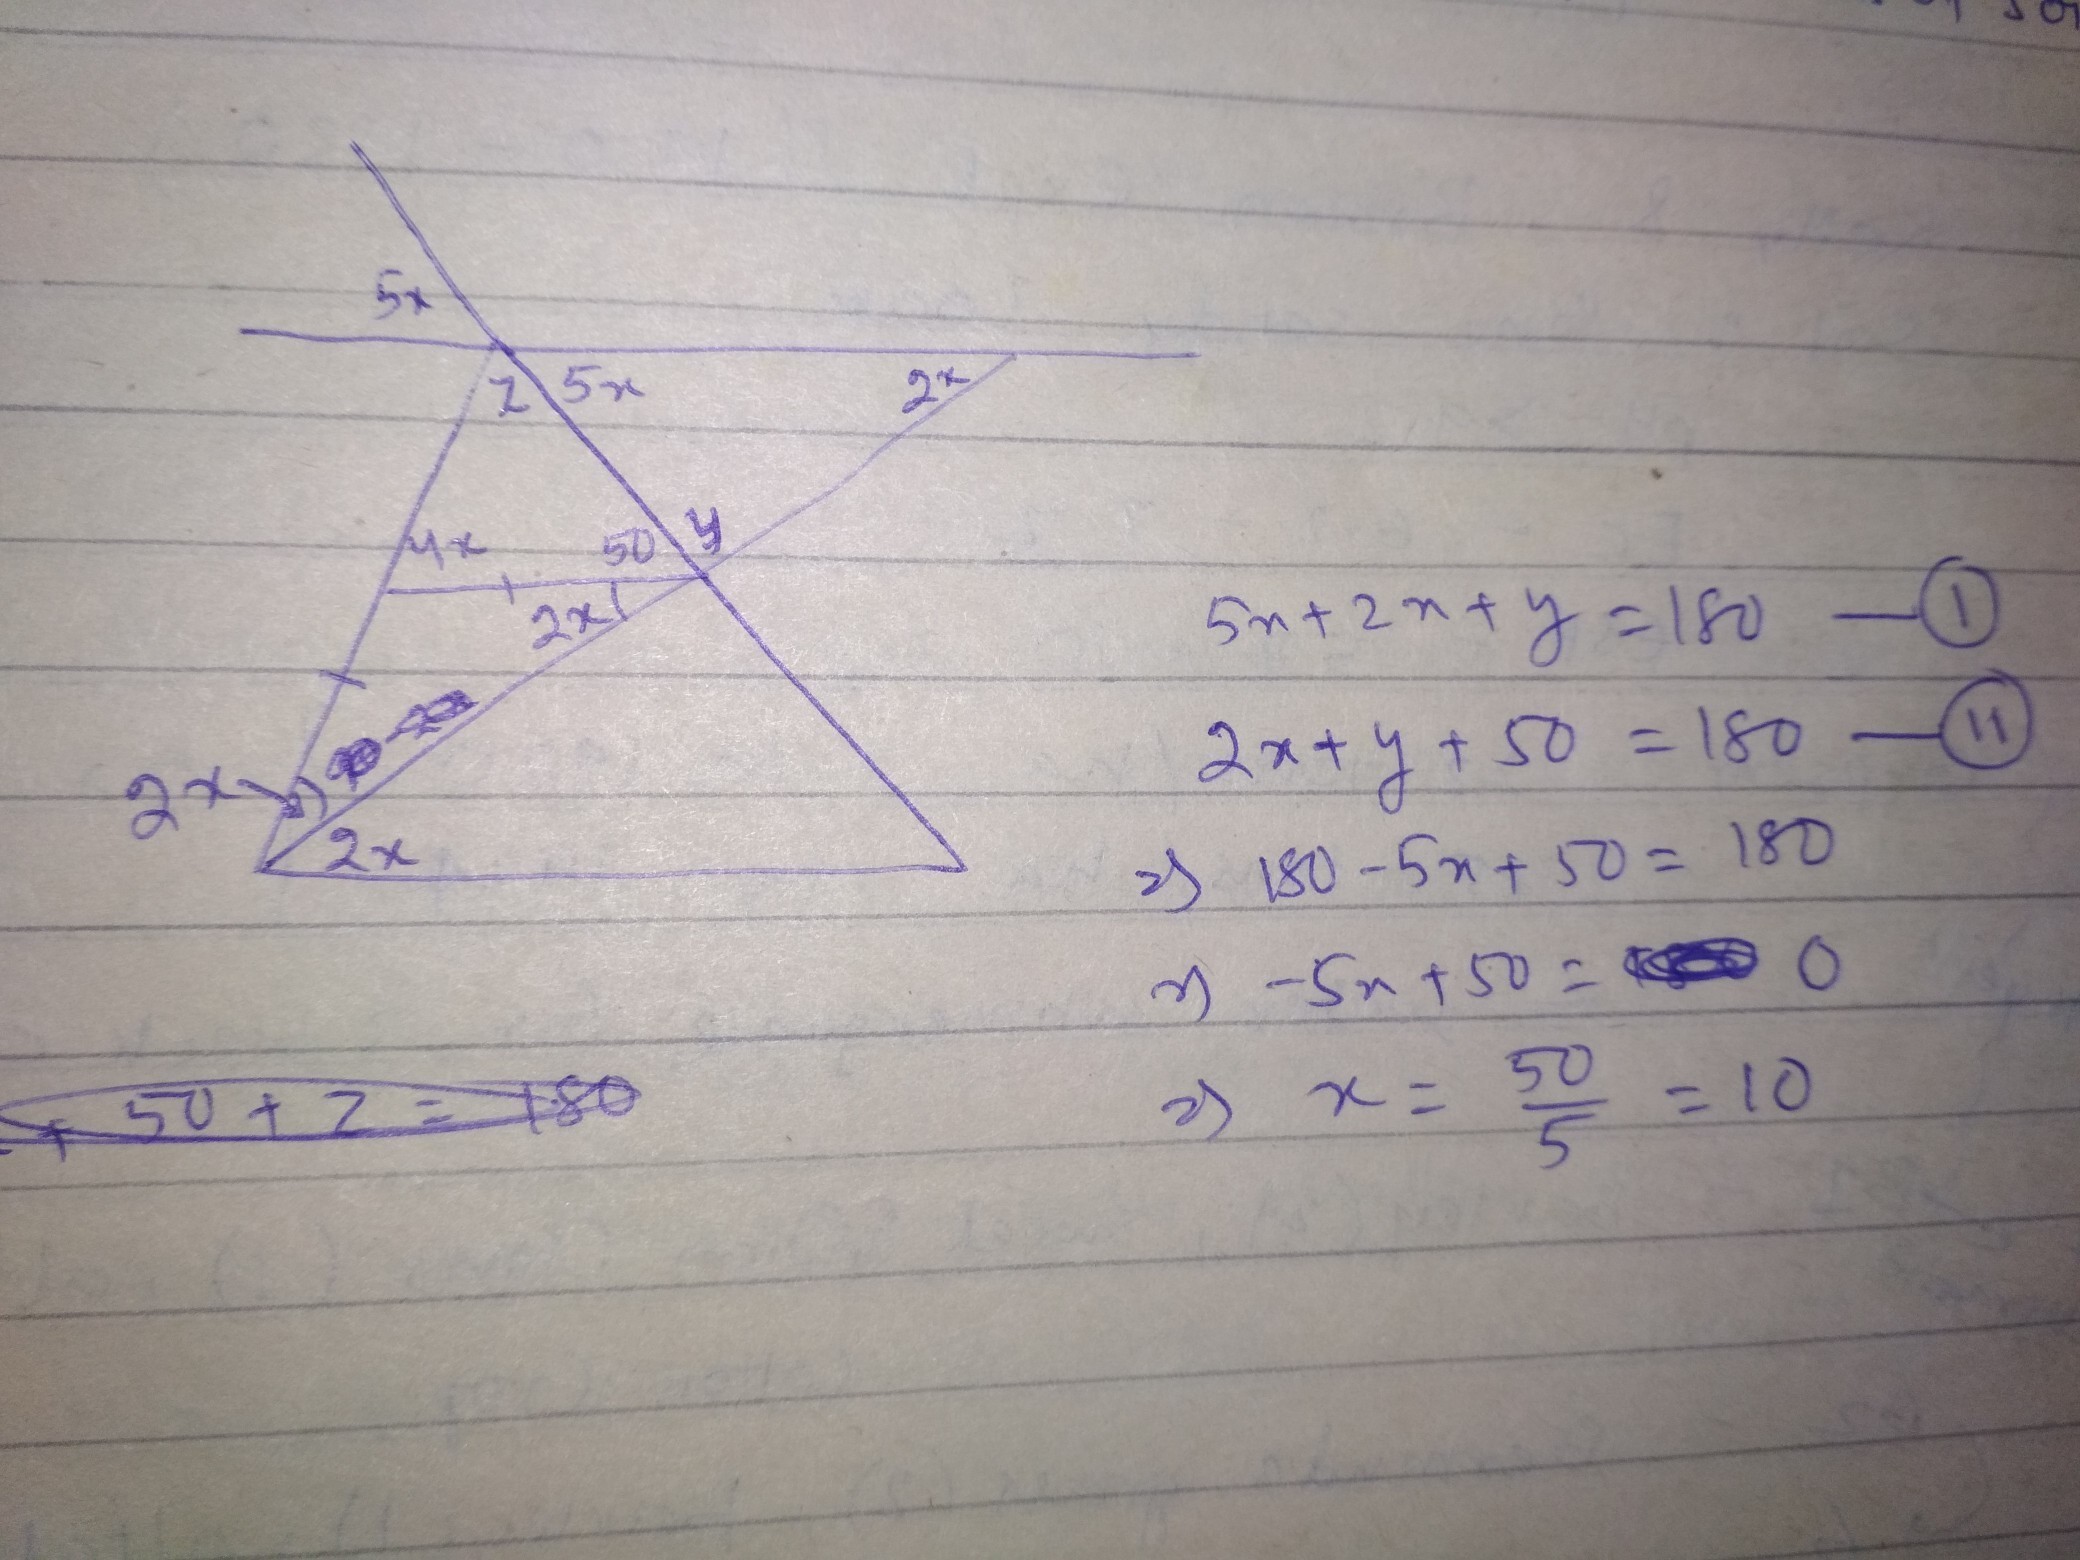 5x
z 5x 2x
4x 50 y
2x
2x
2x
5x + 2x + y = 180 — I
2x + y + 50 = 180 — II
⇒ 180 - 5x + 50 = 180
⇒ -5x + 50 = 0
⇒ x = 50/5 = 10
+ 50 + z = 180